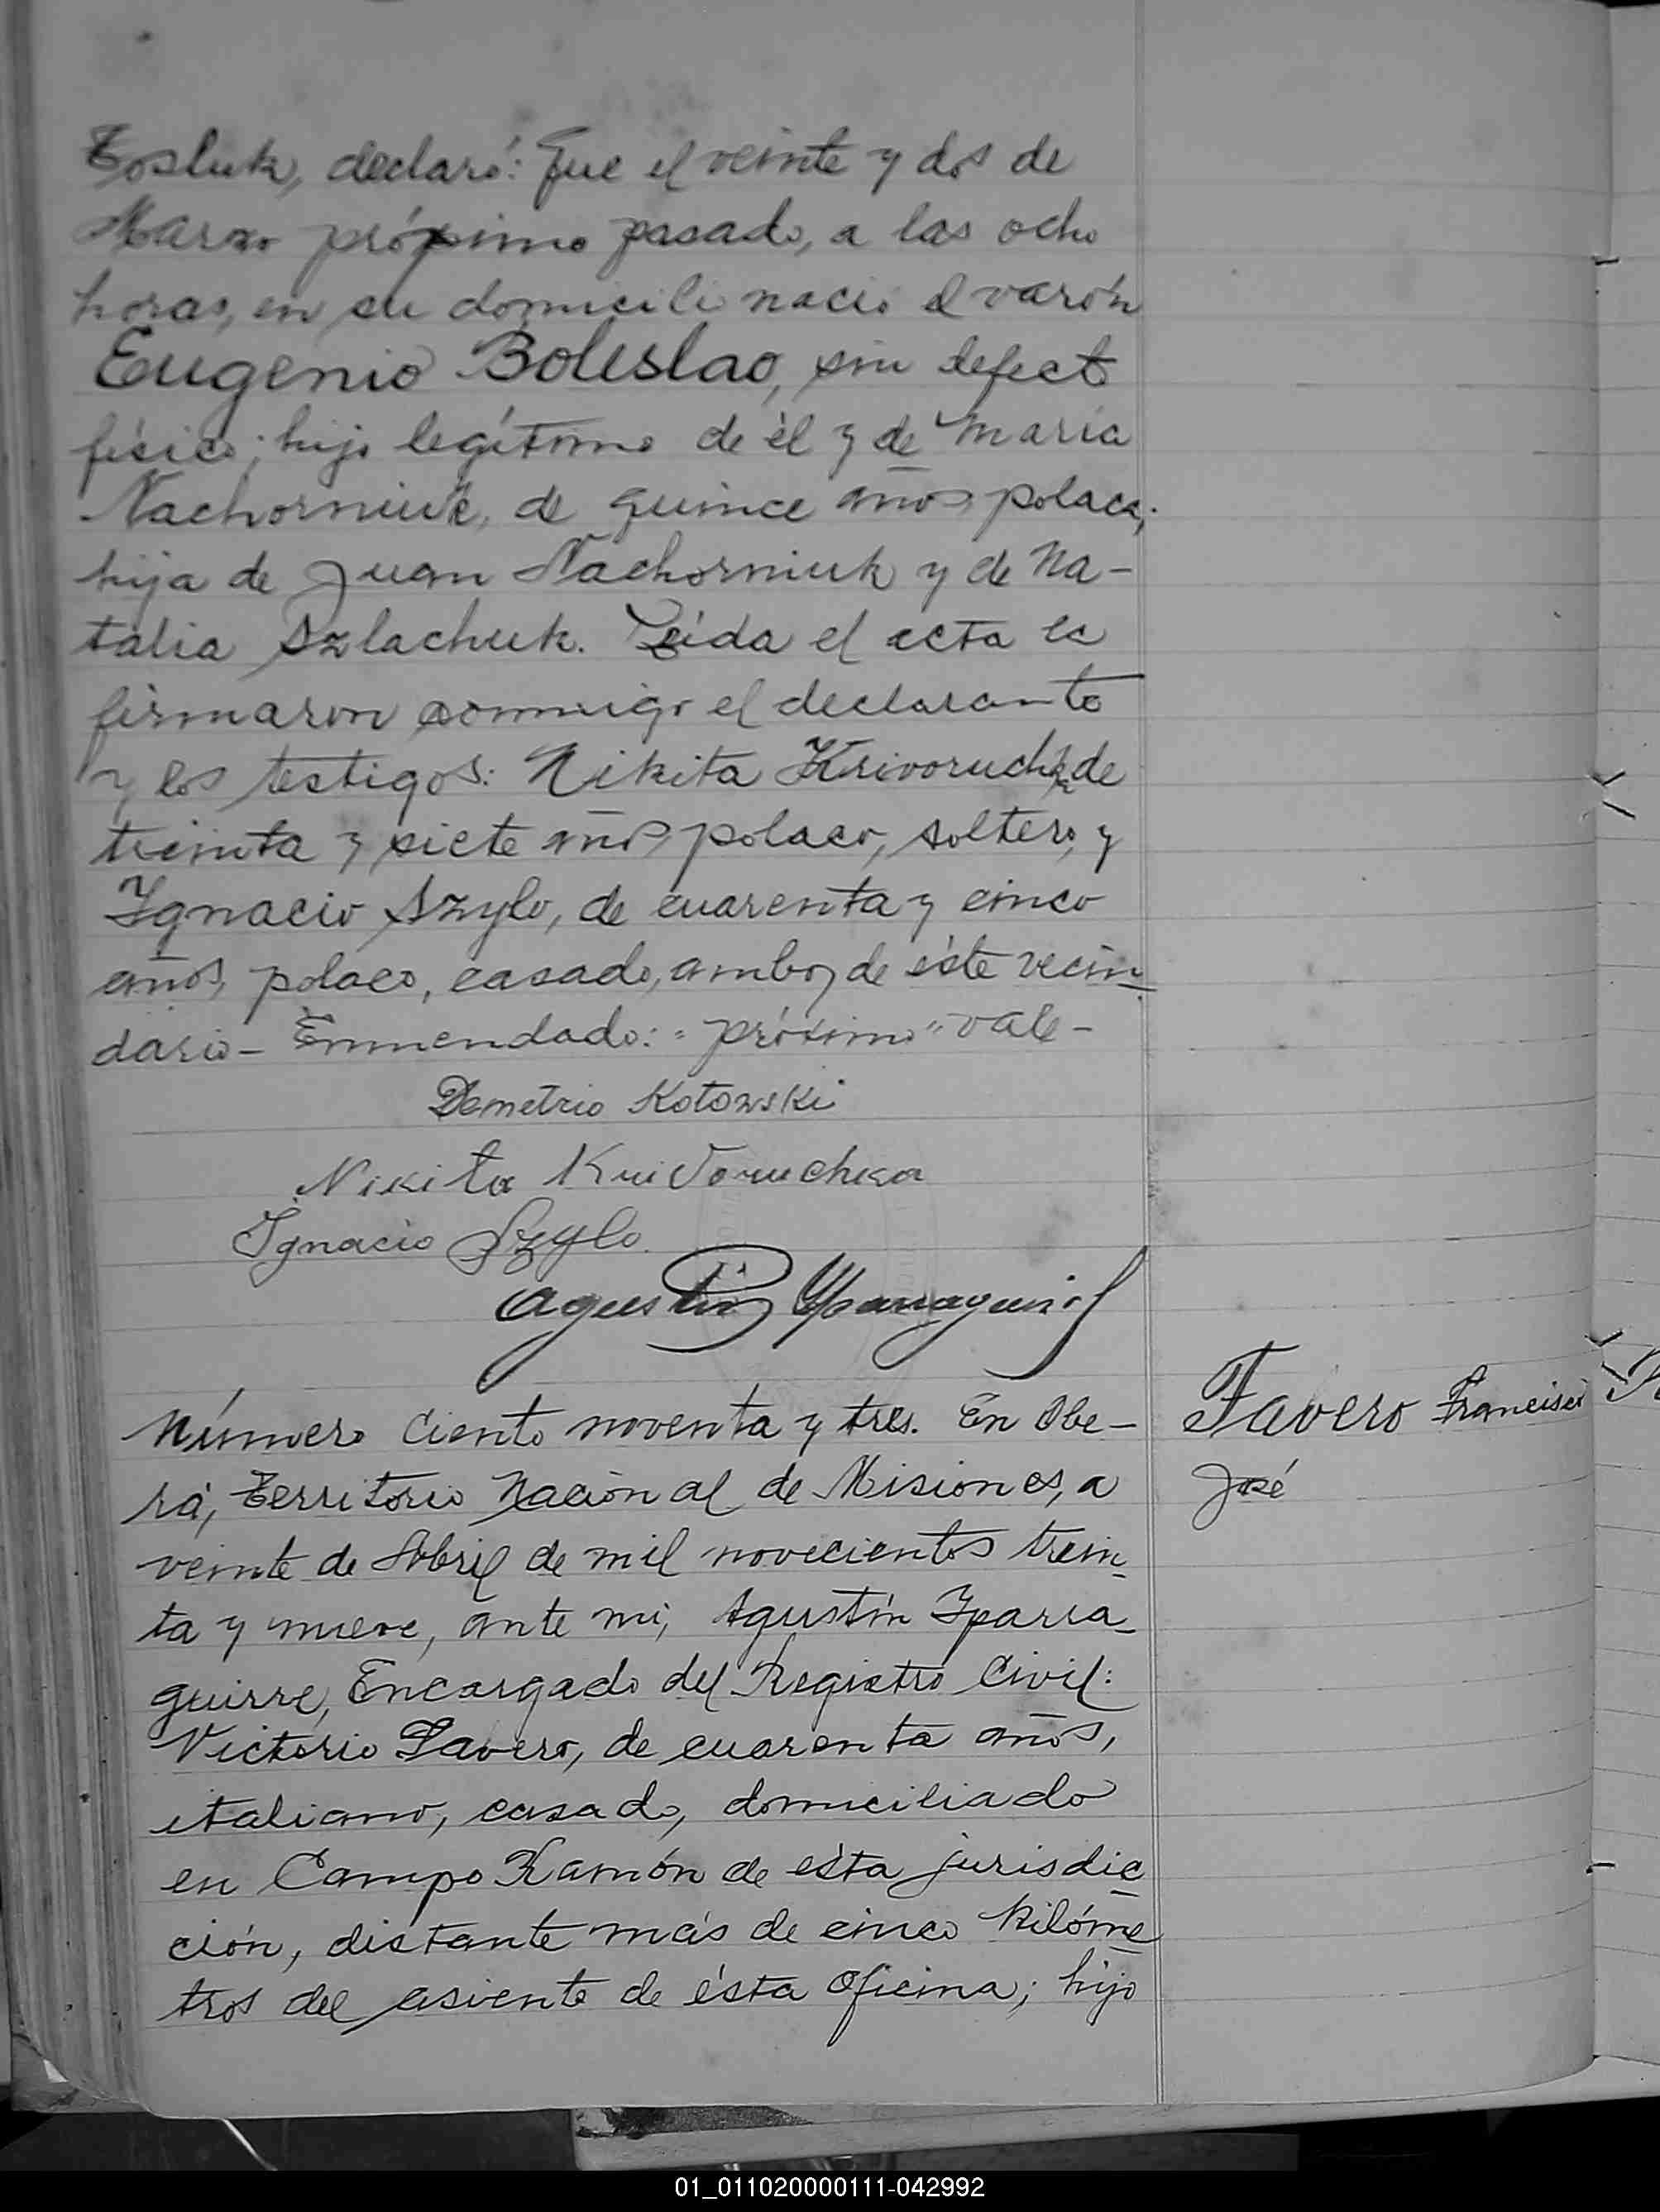 Tosluk, declaró: Que el veinte y dos de
Marzo próximo pasado, a las ocho
horas, en su domicili nació el varón
Eugenio Boleslao, sin defecto
físico; hijo legítimo de él y de María
Nachorniuk, de quince años, polaca;
hija de Juan Nachorniuk y de Na-
talia Szlachuk. Leída el acta la
firmaron conmigo el declarante
y los testigos: Nikita Krivoruchka de
treinta y siete años, polaco, soltero, y
Ignacio Szylo, de cuarenta y cinco
años, polaco, casado, ambos de éste vecin-
dario- Enmendado: "próximo" vale-
Demetrio Kotowski
Nikita Krivoruchka
Ignacio Szylo.
Agustín Yparraguirre
Número ciento noventa y tres. En Obe-
rá, Territorio Nacional de Misiones, a
veinte de Abril de mil novecientos trein-
ta y nueve, ante mi, Agustín Yparra-
guirre, Encargado del Registro Civil:
Victorio Favero, de cuarenta años,
italiano, casado, domiciliado
en Campo Ramón de ésta jurisdic-
ción, distante más de cinco kilóme-
tros del asiento de ésta Oficina; hijo
Favero Francisco
José
01_011020000111-042992